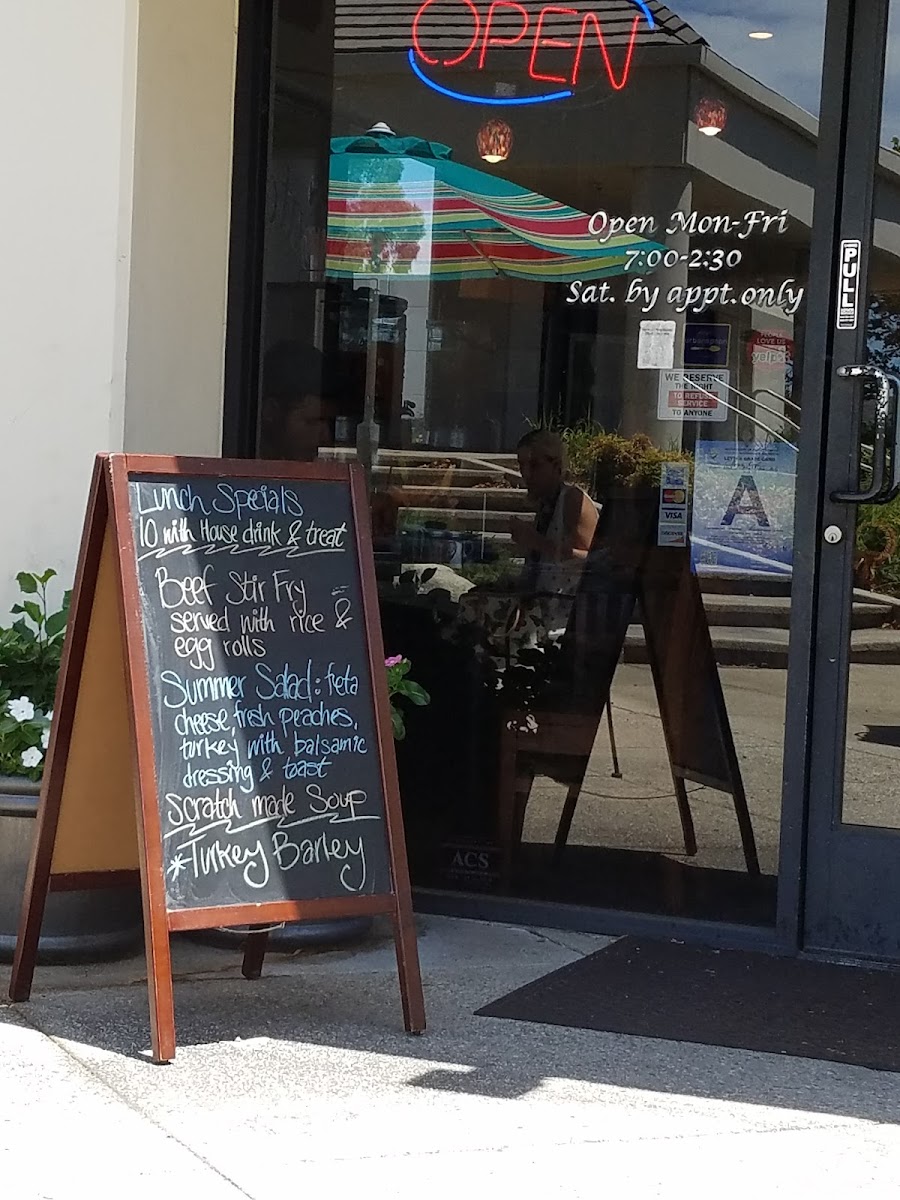 OPEN
Open Mon-Fri
7:00-2:30
Sat. by appt.only
PULL
LOVE US
yelp
WE RESERVE
THE RIGHT
TO REFUSE
SERVICE
TO ANYONE
A
VISA
Lunch Specials
10 with House drink & treat
Beef Stir Fry
served with rice &
egg rolls
Summer Salad: feta
cheese, fresh peaches,
turkey with balsamic
dressing & toast
Scratch made Soup
*Turkey Barley
ACS